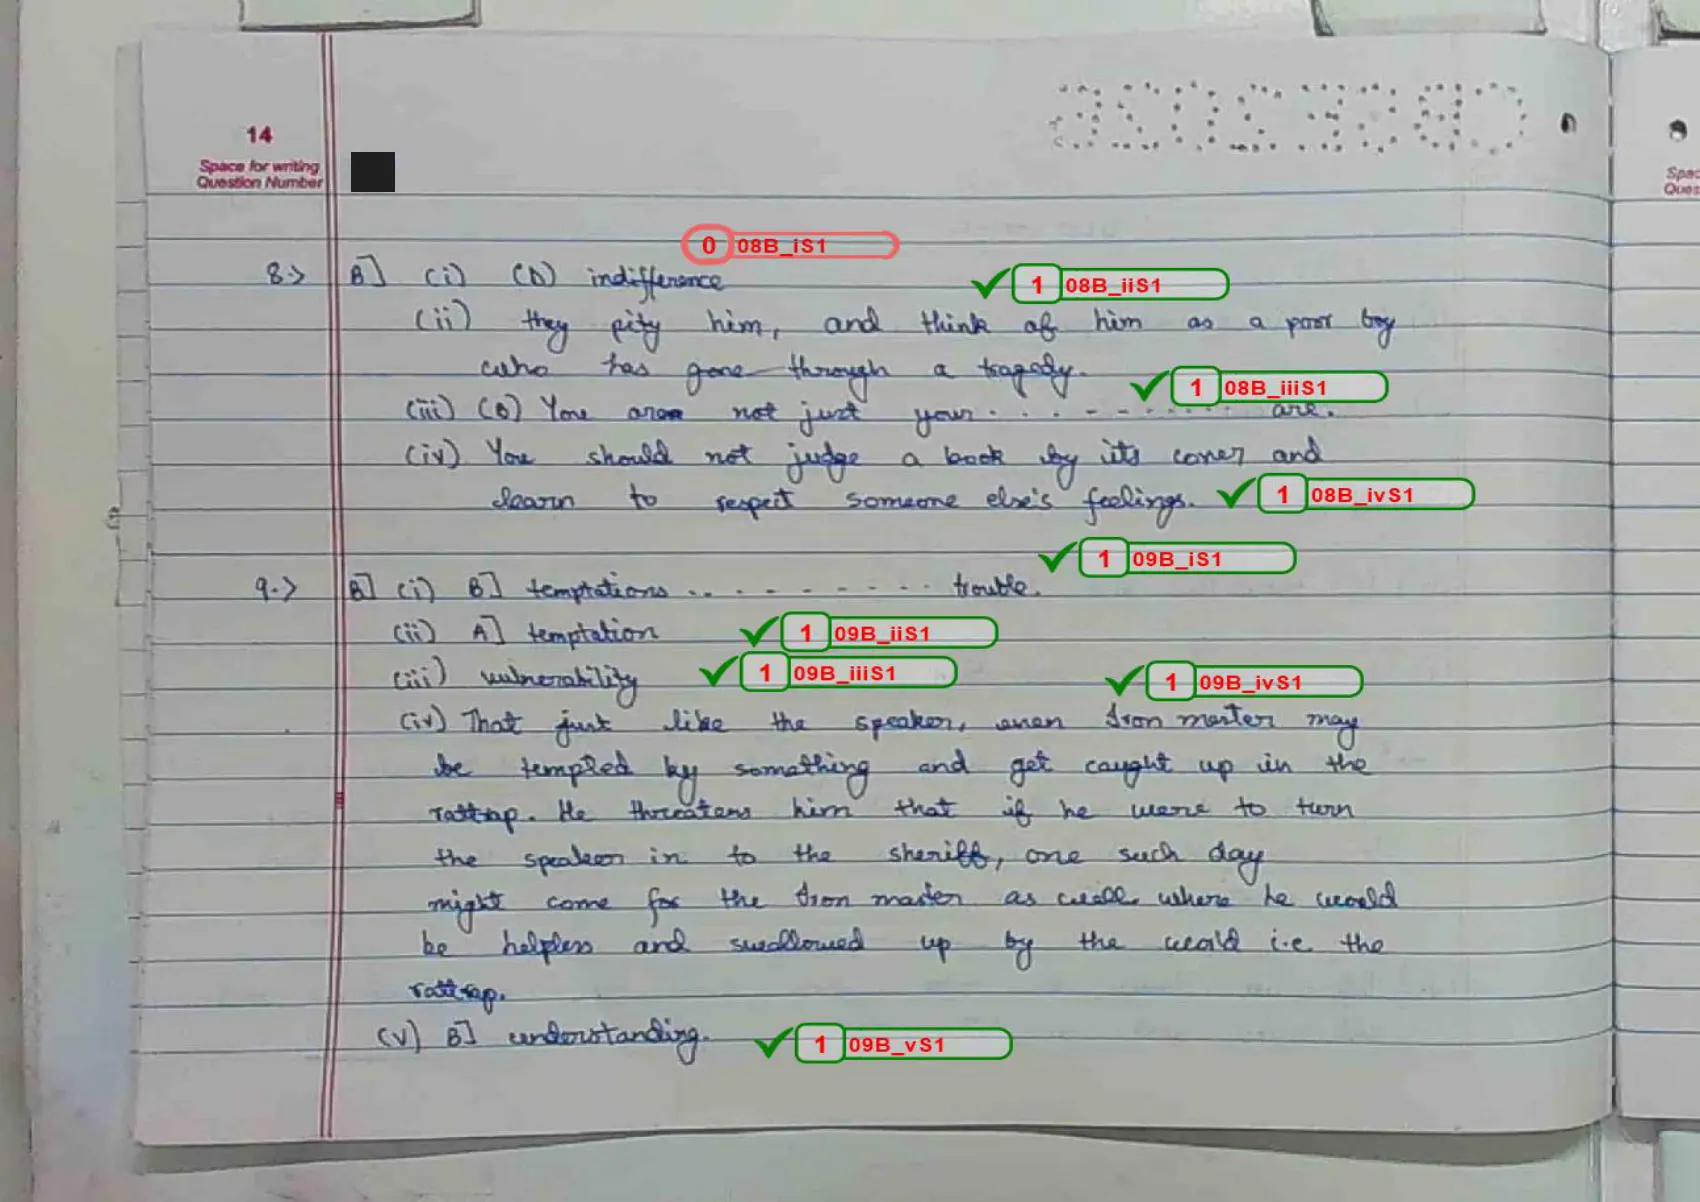 14
Space for writing
Question Number
CBSE 2026
Spac
Ques
0 08B_iS1
8.> B] (i) (D) indifference
1 08B_iiS1
(ii) they pity him, and think of him as a poor boy
who has gone through a tragedy.
1 08B_iiiS1
(iii) (B) You are not just your . . . - - - . . . . . are.
(iv) You should not judge a book by its cover and
learn to respect someone else's feelings.
1 08B_ivS1
1 09B_iS1
9.> B] (i) B] temptations .. . - - - - - . . trouble.
(ii) A] temptation
1 09B_iiS1
(iii) vulnerability
1 09B_iiiS1
1 09B_ivS1
(iv) That just like the speaker, even Iron master may
be tempted by something and get caught up in the
rattrap. He threatens him that if he were to turn
the speaker in to the sheriff, one such day
might come for the Iron master as well. where he would
be helpless and swallowed up by the world i.e. the
rattrap.
(v) B] understanding.
1 09B_vS1